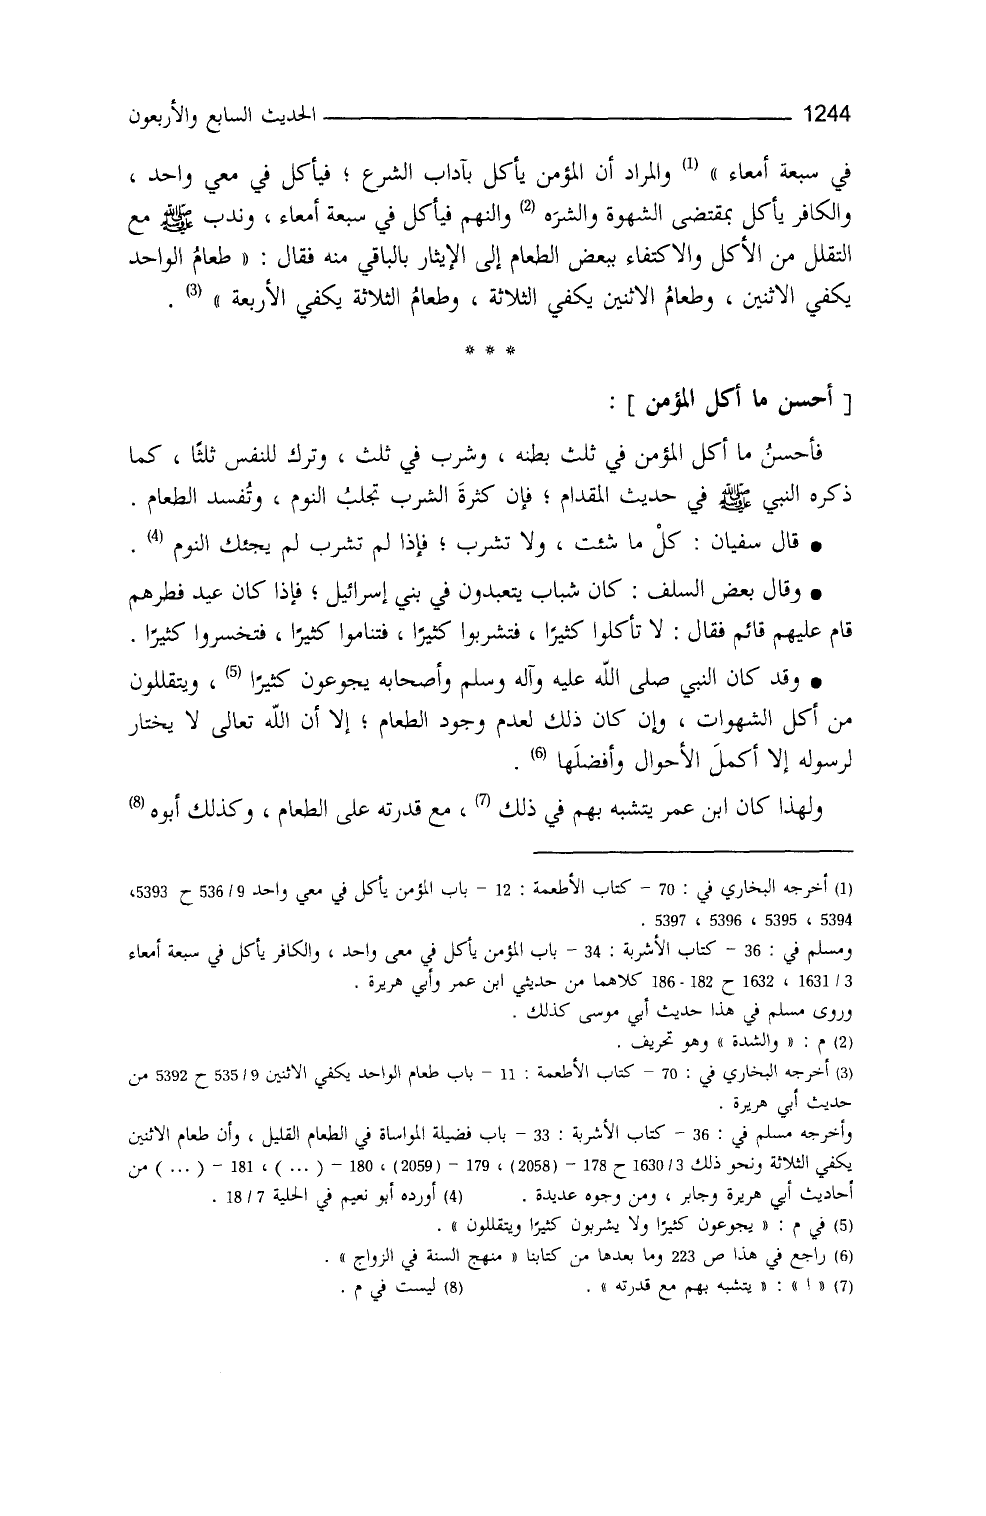 1244 الحديث السابع والأربعون
في سبعة أمعاء » (1) والمراد أن المؤمن يأكل بآداب الشرع ؛ فيأكل في معي واحد ،
والكافر يأكل بمقتضى الشهوة والشرَه (2) والنهم فيأكل في سبعة أمعاء ، وندب ﷺ مع
التقلل من الأكل والاكتفاء ببعض الطعام إلى الإيثار بالباقي منه فقال : « طعامُ الواحد
يكفي الاثنين ، وطعامُ الاثنين يكفي الثلاثة ، وطعامُ الثلاثة يكفي الأربعة » (3) .
* * *
[ أحسن ما أكل المؤمن ] :
فأحسنُ ما أكل المؤمن في ثلث بطنه ، وشرب في ثلث ، وترك للنفس ثلثًا ، كما
ذكره النبي ﷺ في حديث المقدام ؛ فإن كثرةَ الشرب تجلبُ النوم ، وتُفسد الطعام .
● قال سفيان : كلْ ما شئت ، ولا تشرب ؛ فإذا لم تشرب لم يجئك النوم (4) .
● وقال بعض السلف : كان شباب يتعبدون في بني إسرائيل ؛ فإذا كان عيد فطرهم
قام عليهم قائم فقال : لا تأكلوا كثيرًا ، فتشربوا كثيرًا ، فتناموا كثيرًا ، فتخسروا كثيرًا .
● وقد كان النبي صلى اللّه عليه وآله وسلم وأصحابه يجوعون كثيرًا (5) ، ويتقللون
من أكل الشهوات ، وإن كان ذلك لعدم وجود الطعام ؛ إلا أن اللّه تعالى لا يختار
لرسوله إلا أكملَ الأحوال وأفضلَها (6) .
ولهذا كان ابن عمر يتشبه بهم في ذلك (7) ، مع قدرته على الطعام ، وكذلك أبوه (8)
(1) أخرجه البخاري في : 70 – كتاب الأطعمة : 12 – باب المؤمن يأكل في معي واحد 9/ 536 ح 5393،
5394 ، 5395 ، 5396 ، 5397 .
ومسلم في : 36 – كتاب الأشربة : 34 – باب المؤمن يأكل في معى واحد ، والكافر يأكل في سبعة أمعاء
3 / 1631 ، 1632 ح 182 - 186 كلاهما من حديثي ابن عمر وأبي هريرة .
وروى مسلم في هذا حديث أبي موسى كذلك .
(2) م : « والشدة » وهو تحريف .
(3) أخرجه البخاري في : 70 – كتاب الأطعمة : 11 – باب طعام الواحد يكفي الاثنين 9/ 535 ح 5392 من
حديث أبي هريرة .
وأخرجه مسلم في : 36 – كتاب الأشربة : 33 – باب فضيلة المواساة في الطعام القليل ، وأن طعام الاثنين
يكفي الثلاثة ونحو ذلك 3/ 1630 ح 178 – (2058) ، 179 – (2059) ، 180 – ( ... ) ، 181 – ( ... ) من
أحاديث أبي هريرة وجابر ، ومن وجوه عديدة . (4) أورده أبو نعيم في الحلية 7/ 18 .
(5) في م : « يجوعون كثيرًا ولا يشربون كثيرًا ويتقللون » .
(6) راجع في هذا ص 223 وما بعدها من كتابنا « منهج السنة في الزواج » .
(7) « ا » : « يتشبه بهم مع قدرته » . (8) ليست في م .